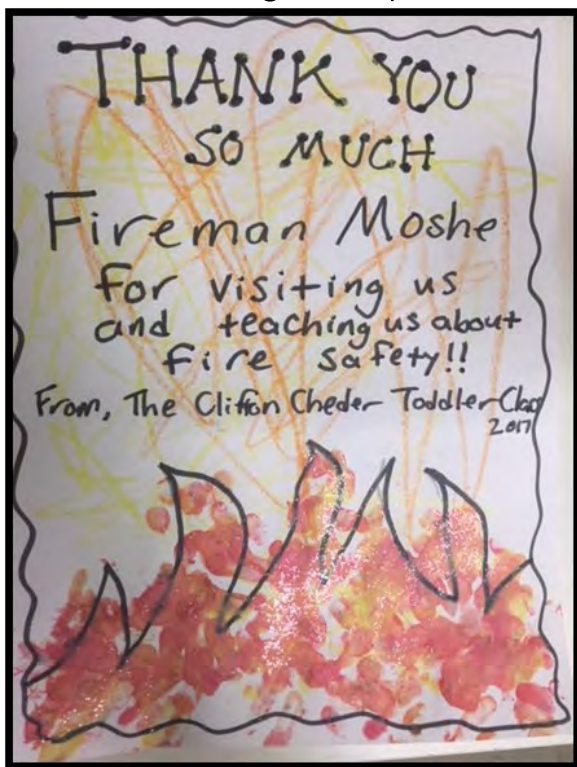 THANK YOU
SO MUCH
Fireman Moshe
for visiting us
and teaching us about
fire safety!!
From, The Clifton Cheder Toddler Class
2017